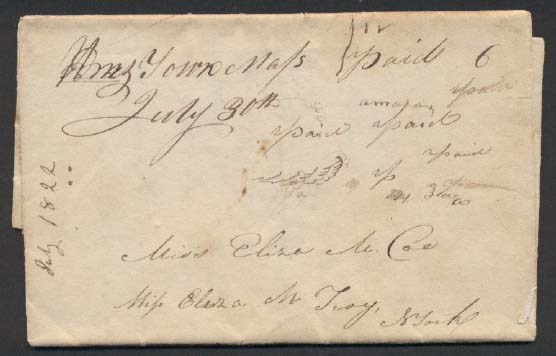 Town Mass paid 6
July 30th
paid
paid paid
paid
July 1822
Miss Eliza M. Coe
Miss Eliza M Troy,
N York